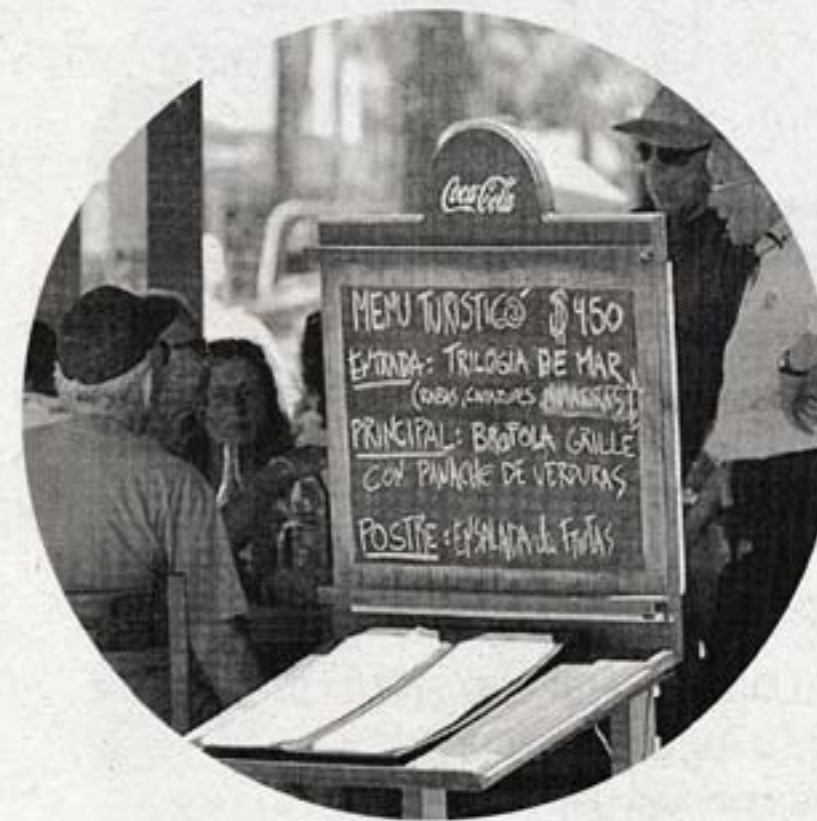 Coca-Cola
MENU TURISTICO $450
ENTRADA: TRILOGIA DE MAR
(RABAS, CAMARONES
PRINCIPAL: BROTOLA GRILLE
CON PANACHE DE VERDURAS
POSTRE: ENSALADA de FRUTAS